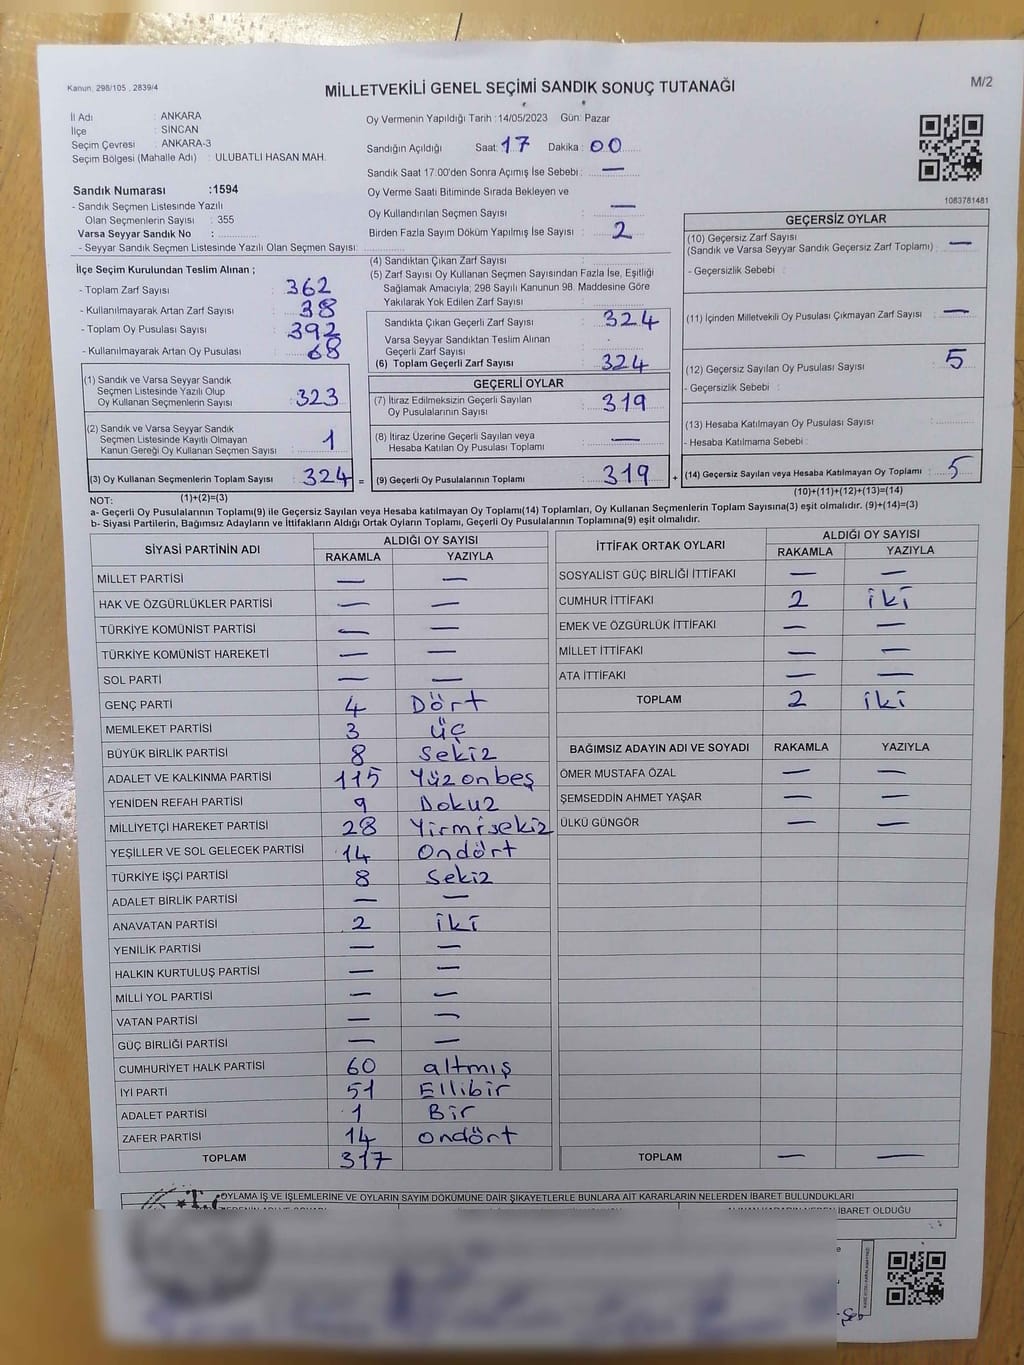 Kanun, 298/105 , 2839/4
MİLLETVEKİLİ GENEL SEÇİMİ SANDIK SONUÇ TUTANAĞI
M/2
İl Adı : ANKARA
İlçe : SİNCAN
Seçim Çevresi : ANKARA-3
Seçim Bölgesi (Mahalle Adı) : ULUBATLI HASAN MAH.
Sandık Numarası :1594
- Sandık Seçmen Listesinde Yazılı
Olan Seçmenlerin Sayısı : 355
Varsa Seyyar Sandık No :
- Seyyar Sandık Seçmen Listesinde Yazılı Olan Seçmen Sayısı:
Oy Vermenin Yapıldığı Tarih :14/05/2023 Gün: Pazar
Sandığın Açıldığı Saat: 17 Dakika : 00
Sandık Saat 17:00'den Sonra Açımış İse Sebebi : —
Oy Verme Saati Bitiminde Sırada Bekleyen ve
Oy Kullandırılan Seçmen Sayısı : —
Birden Fazla Sayım Döküm Yapılmış İse Sayısı : 2
1083781481
İlçe Seçim Kurulundan Teslim Alınan ;
- Toplam Zarf Sayısı : 362
- Kullanılmayarak Artan Zarf Sayısı : 38
- Toplam Oy Pusulası Sayısı : 392
- Kullanılmayarak Artan Oy Pusulası : 68
(1) Sandık ve Varsa Seyyar Sandık
Seçmen Listesinde Yazılı Olup
Oy Kullanan Seçmenlerin Sayısı : 323
(2) Sandık ve Varsa Seyyar Sandık
Seçmen Listesinde Kayıtlı Olmayan
Kanun Gereği Oy Kullanan Seçmen Sayısı : 1
(3) Oy Kullanan Seçmenlerin Toplam Sayısı : 324 =
(4) Sandıktan Çıkan Zarf Sayısı :
(5) Zarf Sayısı Oy Kullanan Seçmen Sayısından Fazla İse, Eşitliği
Sağlamak Amacıyla; 298 Sayılı Kanunun 98. Maddesine Göre
Yakılarak Yok Edilen Zarf Sayısı :
Sandıkta Çıkan Geçerli Zarf Sayısı : 324
Varsa Seyyar Sandıktan Teslim Alınan
Geçerli Zarf Sayısı :
(6) Toplam Geçerli Zarf Sayısı : 324
GEÇERLİ OYLAR
(7) İtiraz Edilmeksizin Geçerli Sayılan
Oy Pusulalarının Sayısı : 319
(8) İtiraz Üzerine Geçerli Sayılan veya
Hesaba Katılan Oy Pusulası Toplamı : —
(9) Geçerli Oy Pusulalarının Toplamı : 319 +
GEÇERSİZ OYLAR
(10) Geçersiz Zarf Sayısı
(Sandık ve Varsa Seyyar Sandık Geçersiz Zarf Toplamı) : —
- Geçersizlik Sebebi :
(11) İçinden Milletvekili Oy Pusulası Çıkmayan Zarf Sayısı : —
(12) Geçersiz Sayılan Oy Pusulası Sayısı : 5
- Geçersizlik Sebebi :
(13) Hesaba Katılmayan Oy Pusulası Sayısı :
- Hesaba Katılmama Sebebi :
(14) Geçersiz Sayılan veya Hesaba Katılmayan Oy Toplamı : 5
NOT: (1)+(2)=(3)
(10)+(11)+(12)+(13)=(14)
a- Geçerli Oy Pusulalarının Toplamı(9) ile Geçersiz Sayılan veya Hesaba katılmayan Oy Toplamı(14) Toplamları, Oy Kullanan Seçmenlerin Toplam Sayısına(3) eşit olmalıdır. (9)+(14)=(3)
b- Siyasi Partilerin, Bağımsız Adayların ve İttifakların Aldığı Ortak Oyların Toplamı, Geçerli Oy Pusulalarının Toplamına(9) eşit olmalıdır.
SİYASİ PARTİNİN ADI ALDIĞI OY SAYISI
RAKAMLA YAZIYLA
MİLLET PARTİSİ — —
HAK VE ÖZGÜRLÜKLER PARTİSİ — —
TÜRKİYE KOMÜNİST PARTİSİ — —
TÜRKİYE KOMÜNİST HAREKETİ — —
SOL PARTİ — —
GENÇ PARTİ 4 Dört
MEMLEKET PARTİSİ 3 üç
BÜYÜK BİRLİK PARTİSİ 8 Sekiz
ADALET VE KALKINMA PARTİSİ 115 Yüzonbeş
YENİDEN REFAH PARTİSİ 9 Dokuz
MİLLİYETÇİ HAREKET PARTİSİ 28 Yirmisekiz
YEŞİLLER VE SOL GELECEK PARTİSİ 14 Ondört
TÜRKİYE İŞÇİ PARTİSİ 8 Sekiz
ADALET BİRLİK PARTİSİ — —
ANAVATAN PARTİSİ 2 iki
YENİLİK PARTİSİ — —
HALKIN KURTULUŞ PARTİSİ — —
MİLLİ YOL PARTİSİ — —
VATAN PARTİSİ — —
GÜÇ BİRLİĞİ PARTİSİ — —
CUMHURİYET HALK PARTİSİ 60 altmış
İYİ PARTİ 51 Ellibir
ADALET PARTİSİ 1 Bir
ZAFER PARTİSİ 14 ondört
TOPLAM 317
İTTİFAK ORTAK OYLARI ALDIĞI OY SAYISI
RAKAMLA YAZIYLA
SOSYALİST GÜÇ BİRLİĞİ İTTİFAKI — —
CUMHUR İTTİFAKI 2 iki
EMEK VE ÖZGÜRLÜK İTTİFAKI — —
MİLLET İTTİFAKI — —
ATA İTTİFAKI — —
TOPLAM 2 iki
BAĞIMSIZ ADAYIN ADI VE SOYADI RAKAMLA YAZIYLA
ÖMER MUSTAFA ÖZAL — —
ŞEMSEDDİN AHMET YAŞAR — —
ÜLKÜ GÜNGÖR — —
TOPLAM — —
OYLAMA İŞ VE İŞLEMLERİNE VE OYLARIN SAYIM DÖKÜMÜNE DAİR ŞİKAYETLERLE BUNLARA AİT KARARLARIN NELERDEN İBARET BULUNDUKLARI
İBARET OLDUĞU